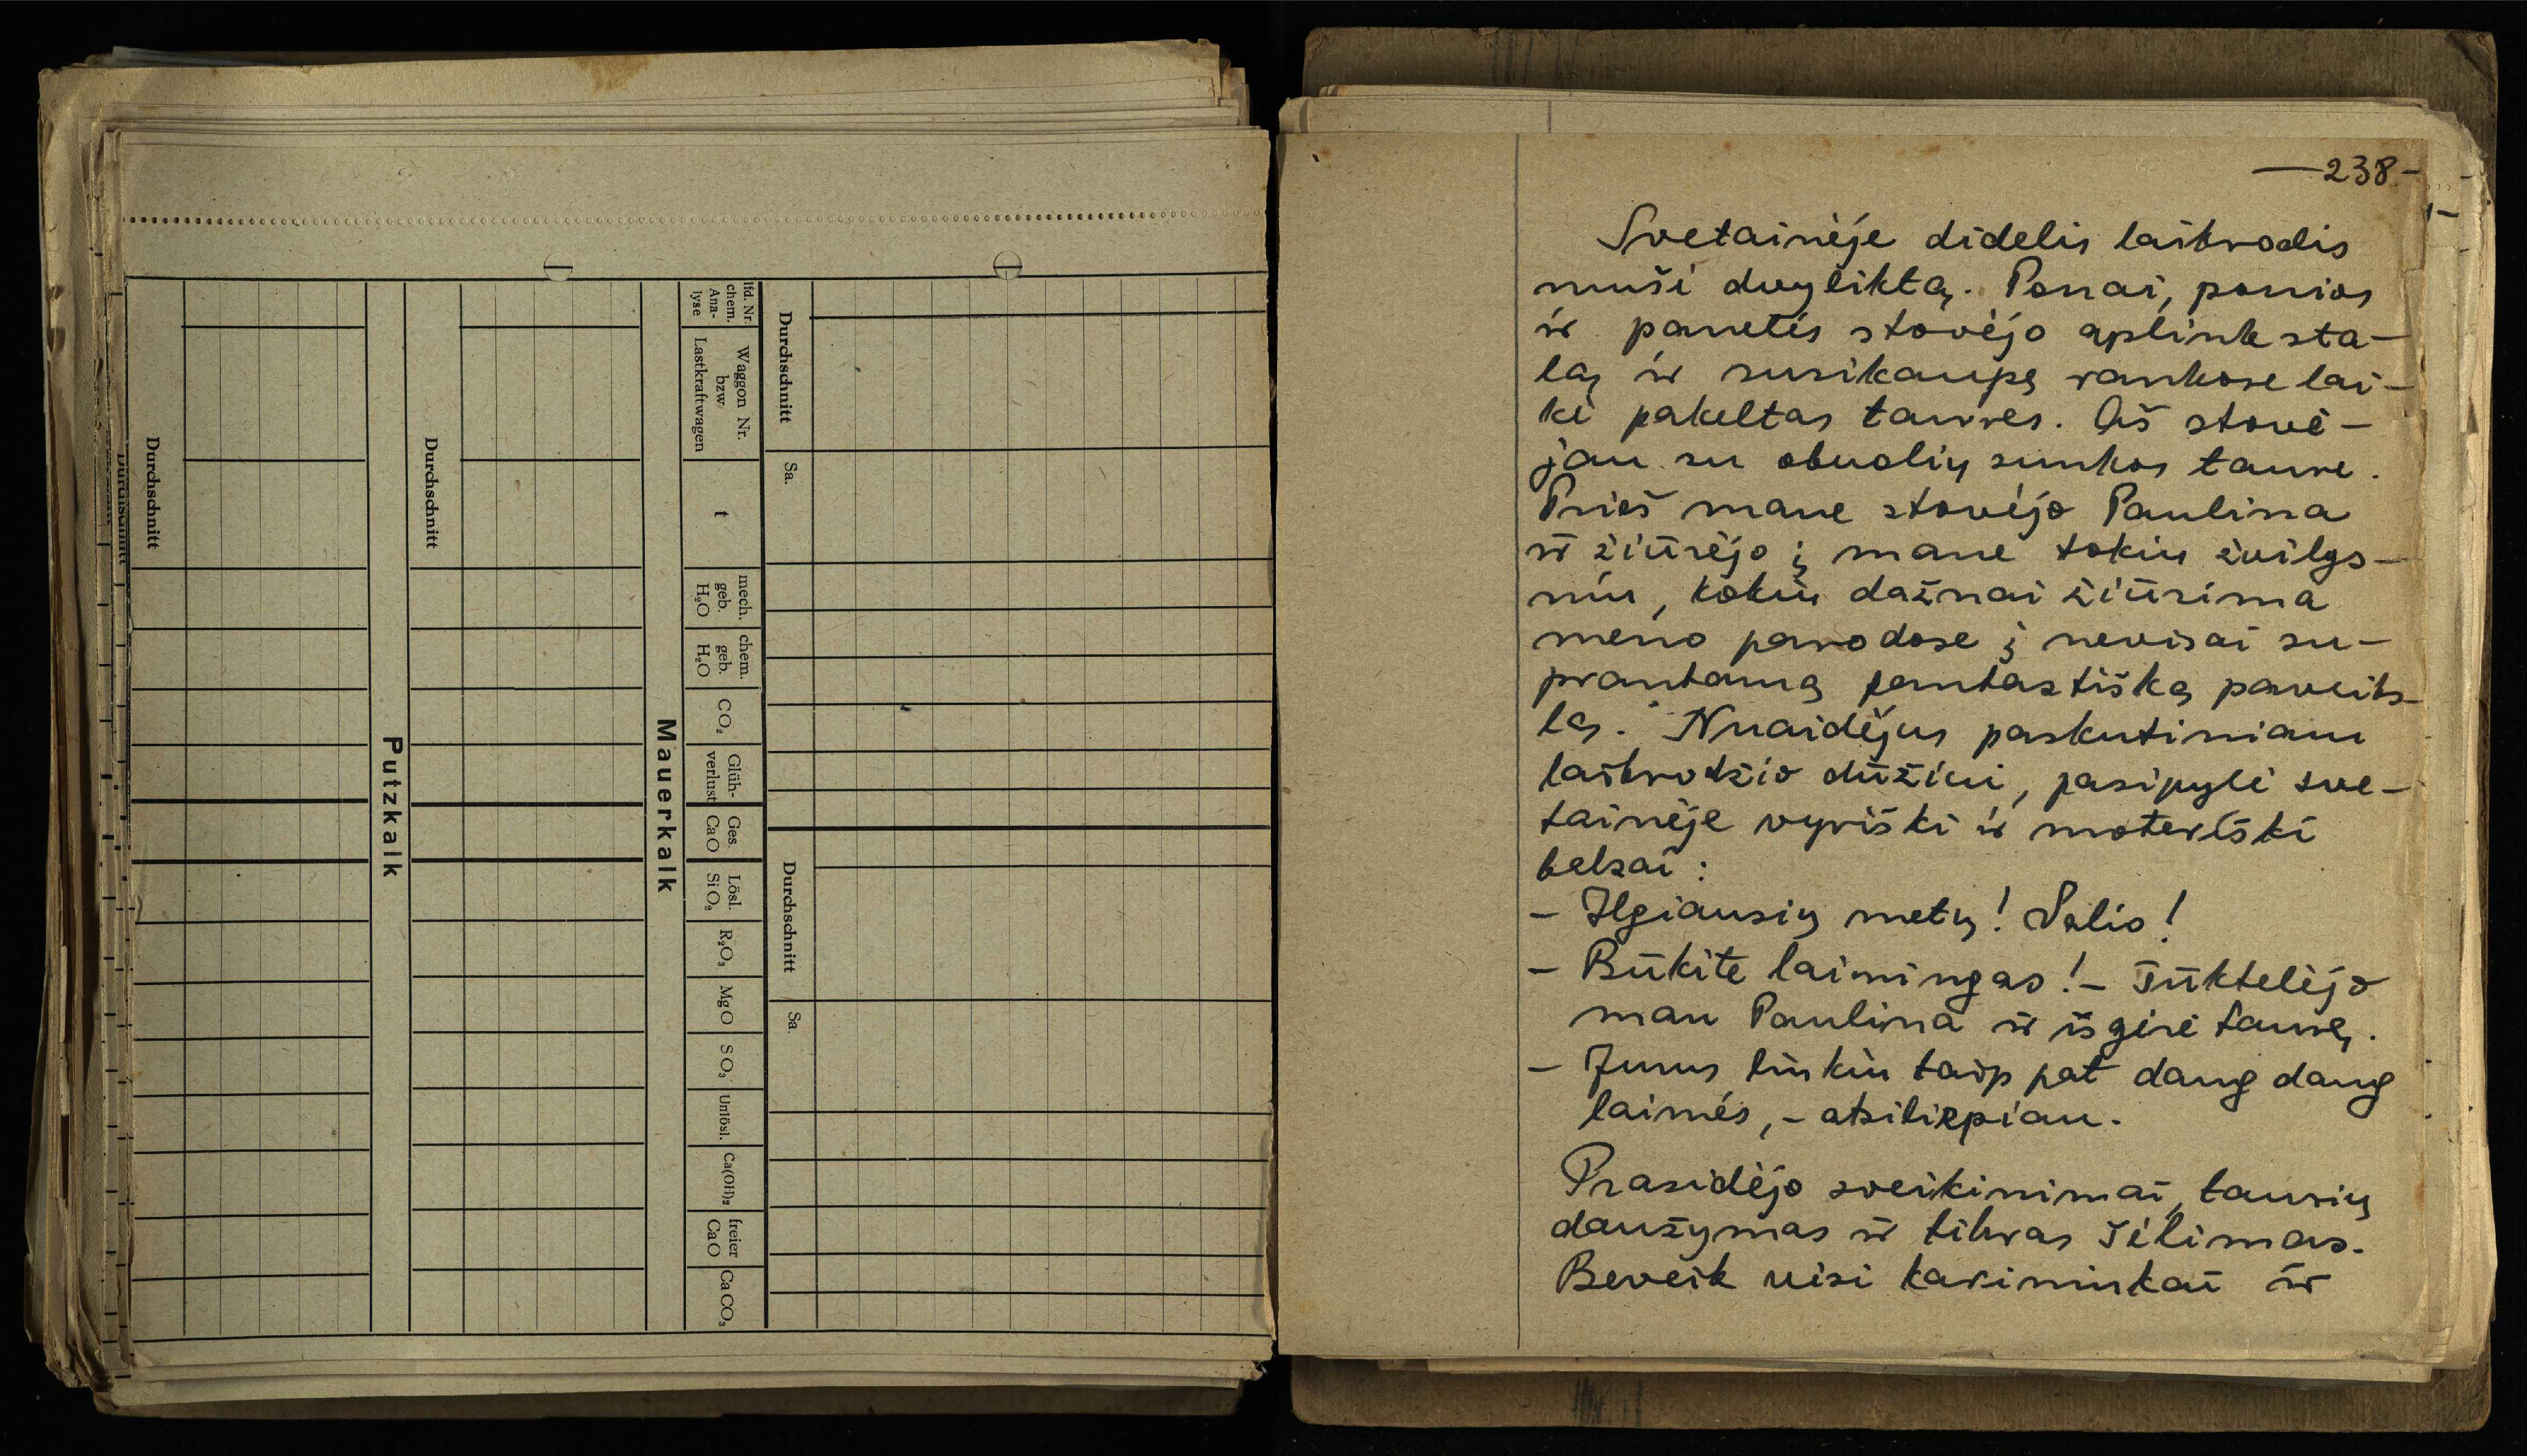 Durchschnitt
Durchschnitt
Putzkalk
Durchschnitt
Mauerkalk
lfd. Nr. chem. Ana- lyse
Waggon Nr. bzw. Lastkraftwagen
t
mech. geb. H₂O
chem. geb. H₂O
CO₂
Glüh- verlust
Ges. CaO
Lösl. SiO₂
R₂O₃
MgO
SO₃
Unlösl.
Ca(OH)₂
freier CaO
CaCO₃
Durchschnitt
Sa.
Durchschnitt
Sa.
—238-
Svetainėje didelis laikrodis
mušė dvyliktą. Ponai, ponios
ir panelės stovėjo aplink sta-
lą ir susikaupę rankose lai-
kė pakeltas taures. Aš stovė-
jau su obuolių sunkos taure.
Prieš mane stovėjo Paulina
ir žiūrėjo į mane tokiu žvilgs-
niu, kokiu dažnai žiūrima
meno parodose į nevisai su-
prantamą fantastišką paveiks-
lą. Nuaidėjus paskutiniam
laikrodžio dūžiui, pasipylė sve-
tainėje vyriški ir moteriški
balsai:
- Ilgiausių metų! Valio!
- Būkite laimingas! - šūktelėjo
man Paulina ir išgėrė taurę.
- Jums linkiu taip pat daug daug
laimės, - atsiliepiau.
Prasidėjo sveikinimai, taurių
daužymas ir tikras šėlimas.
Beveik visi karininkai ir